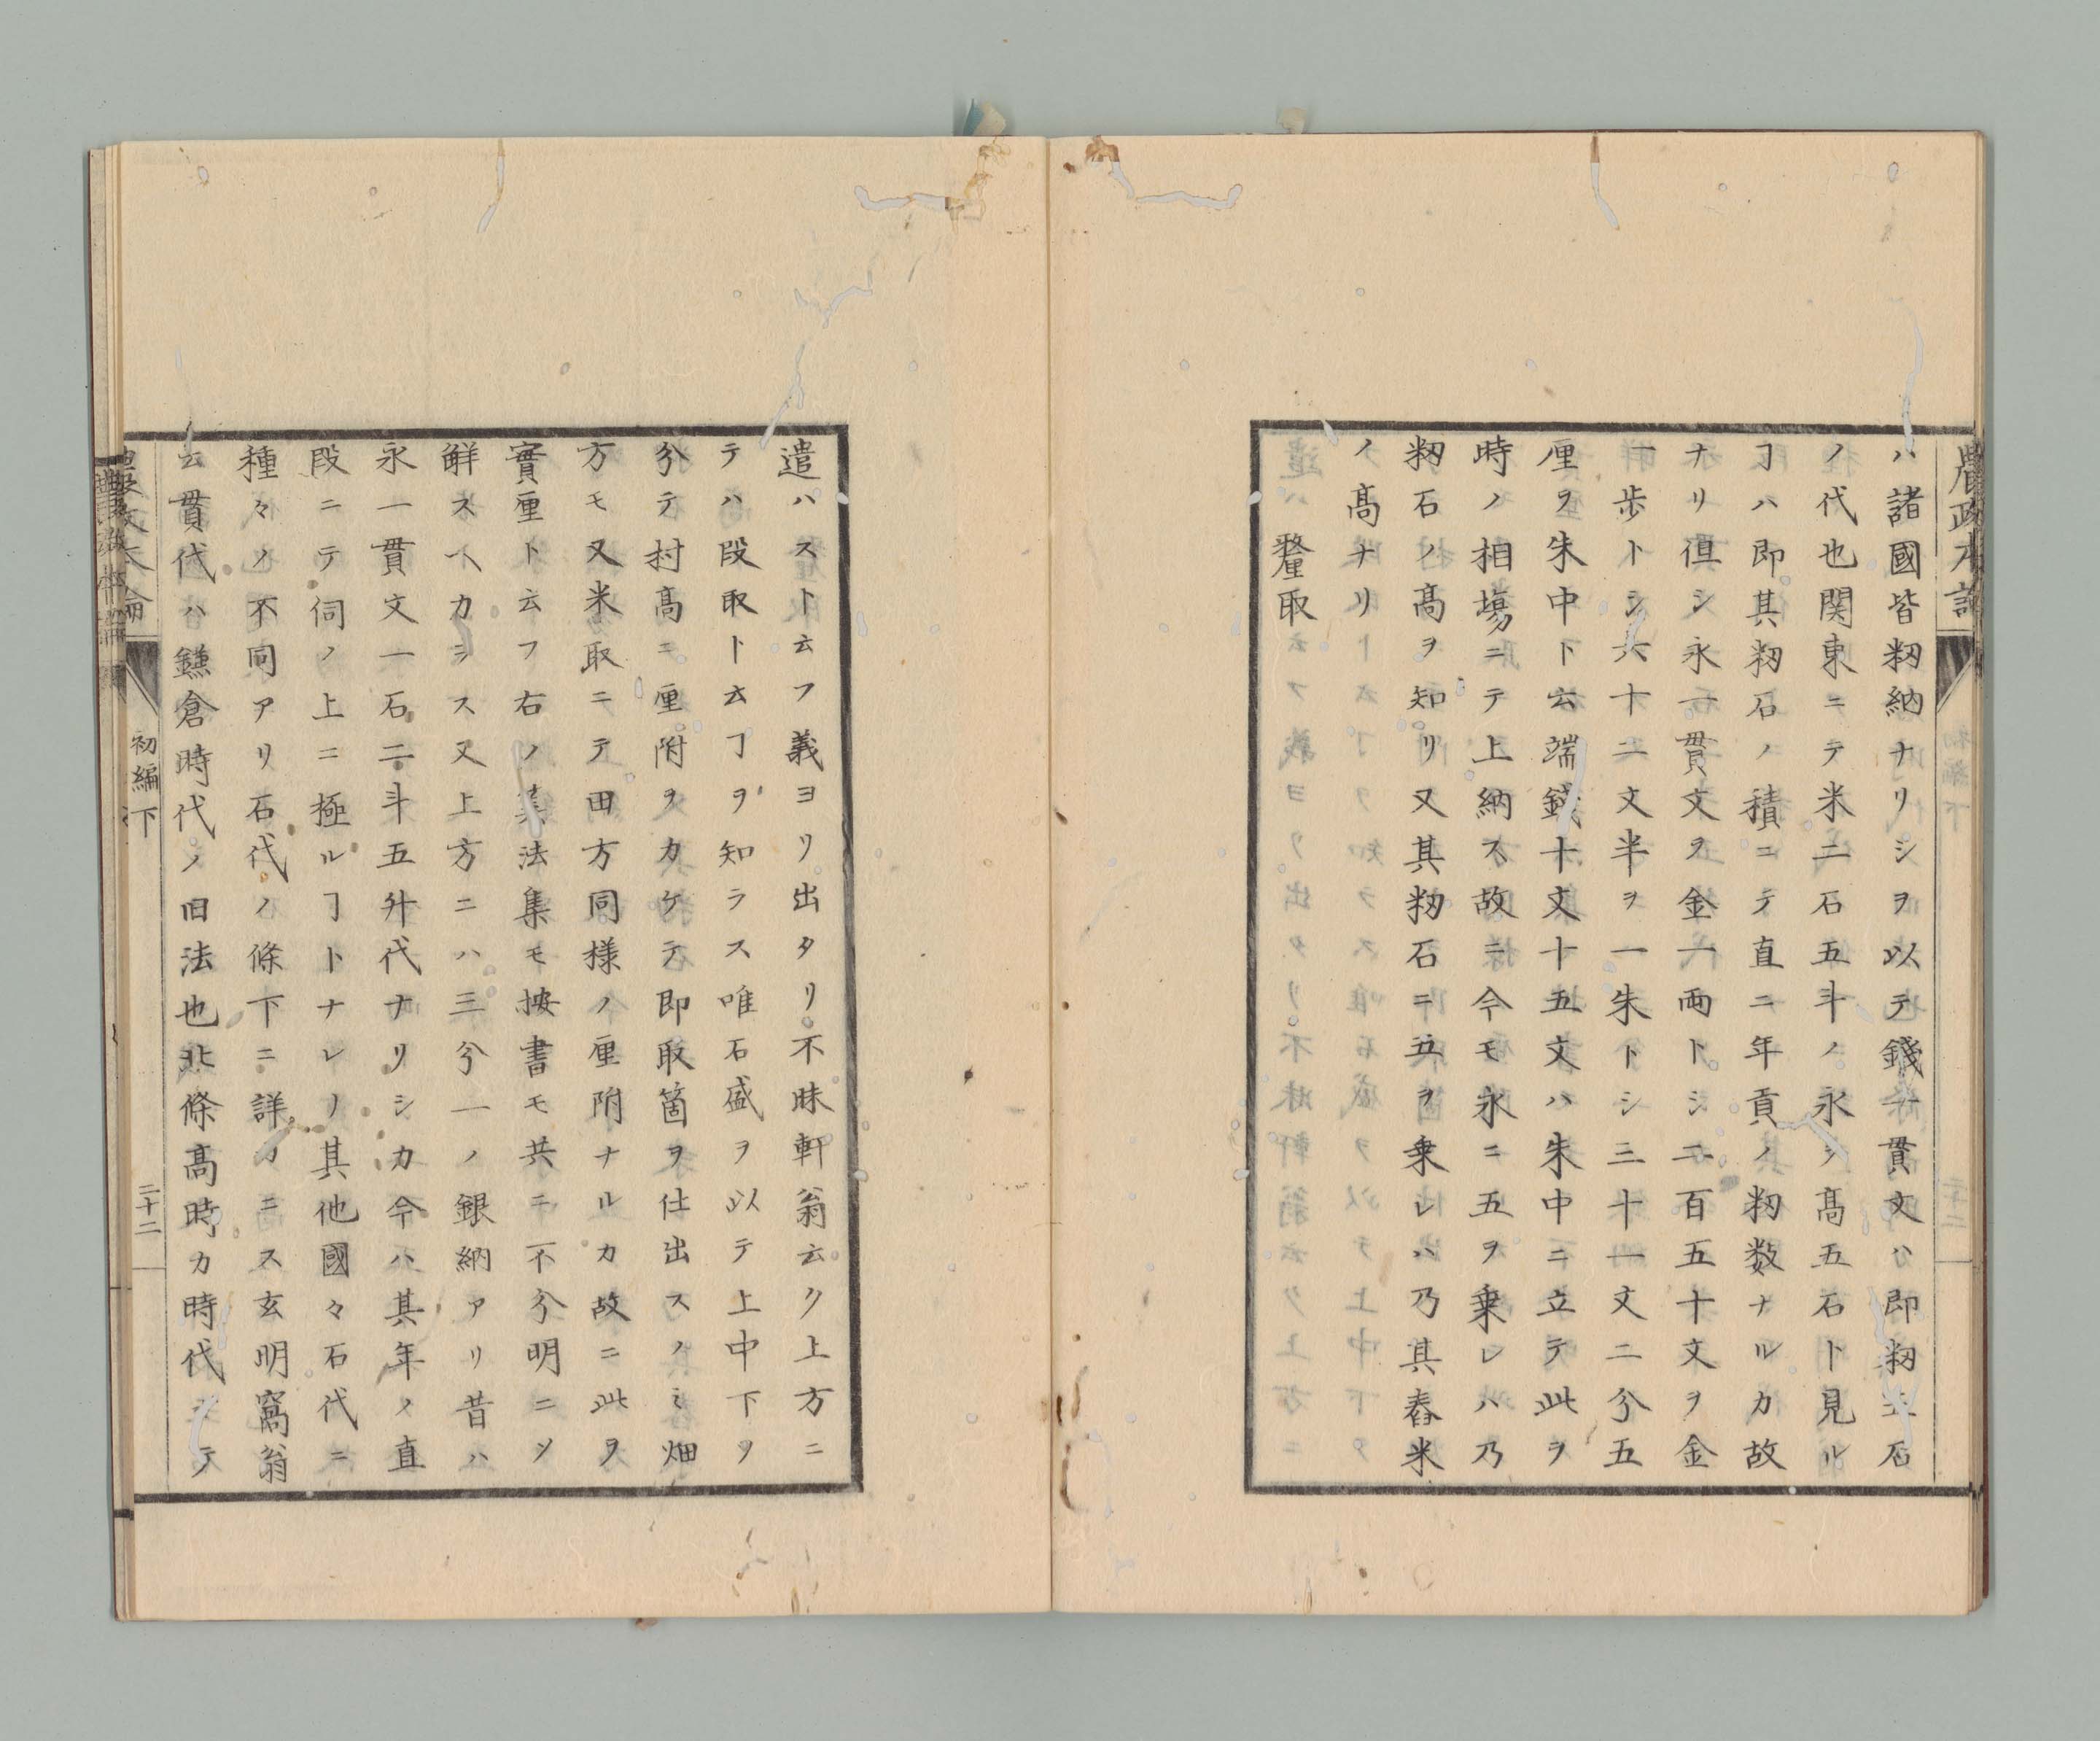 農政本論
ハ諸國皆籾納ナリシヲ以テ錢一貫文ハ即籾五石
ノ代也関東ニテ米二石五斗ノ永ヲ髙五石ト見ル
ヿハ即其籾石ノ積ニテ直ニ年貢ノ籾数ナルカ故
ナリ但シ永一貫文ヲ金一両トシ二百五十文ヲ金
一歩トシ六十二文半ヲ一朱トシ三十一文二分五
厘ヲ朱中ト云端錢十文十五文ハ朱中ニ立テ此ヲ
時ノ相塲ニテ上納ス故ニ今モ永ニ五ヲ乗レハ乃
籾石ノ髙ヲ知リ又其籾石ニ五ヲ乗レハ乃其舂米
ノ髙ナリ
釐取
遣ハスト云フ義ヨリ出タリ不昧軒翁云ク上方ニ
テハ段取ト云ヿヲ知ラス唯石盛ヲ以テ上中下ヲ
分テ村髙ニ厘附ヲカケテ即取箇ヲ仕出スノミ畑
方モ又米取ニテ田方同様ノ厘附ナルカ故ニ此ヲ
實厘ト云フ右ノ法集モ按書モ共ニ不分明ニシ
鮮スヘカラス又上方ニハ三分一ノ銀納アリ昔ハ
永一貫文一石二斗五升代ナリシカ今ハ其年ノ直
段ニテ伺ノ上ニ極ルヿトナレリ其他國々石代ニ
種々ノ不同アリ石代ノ條下ニ詳カニス玄明窩翁
云貫代ハ鎌倉時代ノ旧法也北條髙時カ時代ニテ
農政本論
初編下
二十二